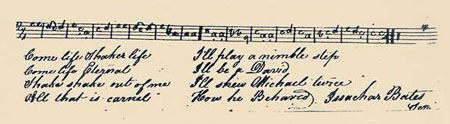 Come life Shaker life
Come life Eternal
Shake shake out of me
All that is carnel
I'll play a nimble step
I'll be a David
I'll shew Michael twice
How he Behaved. Issachar Bates
Sen.